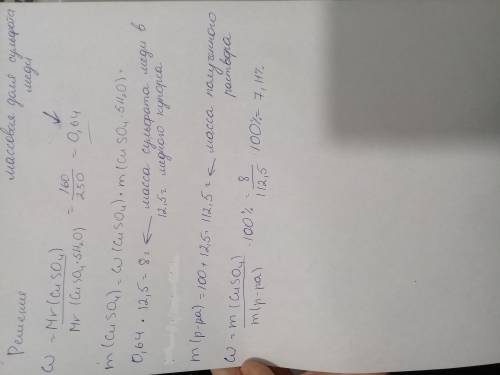 Решение
массовая доля сульфата меди
ω = Mr(CuSO4) / Mr(CuSO4·5H2O) = 160/250 = 0,64
m(CuSO4) = ω(CuSO4)·m(CuSO4·5H2O)=
0,64 · 12,5 = 8г ← масса сульфата меди в
12,5г медного купороса
m(р-ра) = 100 + 12,5 = 112,5г ← масса полученного
раствора
ω = m(CuSO4) / m(р-ра) · 100% = 8/112,5 · 100% = 7,11%